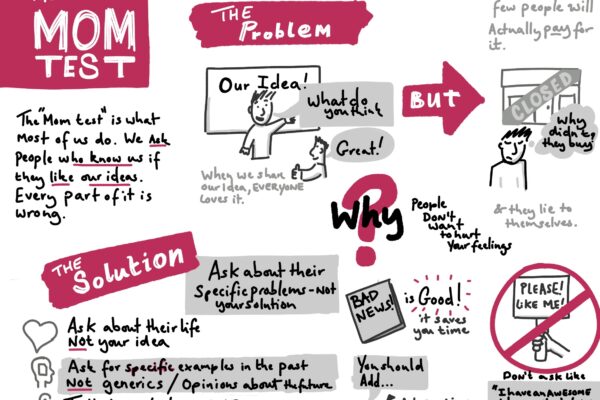 MOM
TEST
The "Mom test" is what
most of us do. We Ask
People who know us if
they like our ideas.
Every part of it is
wrong.
THE
Problem
Our Idea!
What do
you think
Great!
When we share
our Idea, EVERYONE
Loves it.
BUT
few people will
Actually pay for
it.
CLOSED
Why
didn't
they buy
& they lie to
themselves.
Why
People
Don't
want
to hurt
Your feelings
THE
Solution
Ask about their
Specific problems - Not
your solution
Ask about their life
NOT your idea
Ask for specific examples in the past
NOT generics / Opinions about the future
BAD
NEWS!
is Good!
it saves
you time
You should
Add...
PLEASE!
LIKE ME!
Don't ask like
"I have an AWESOME